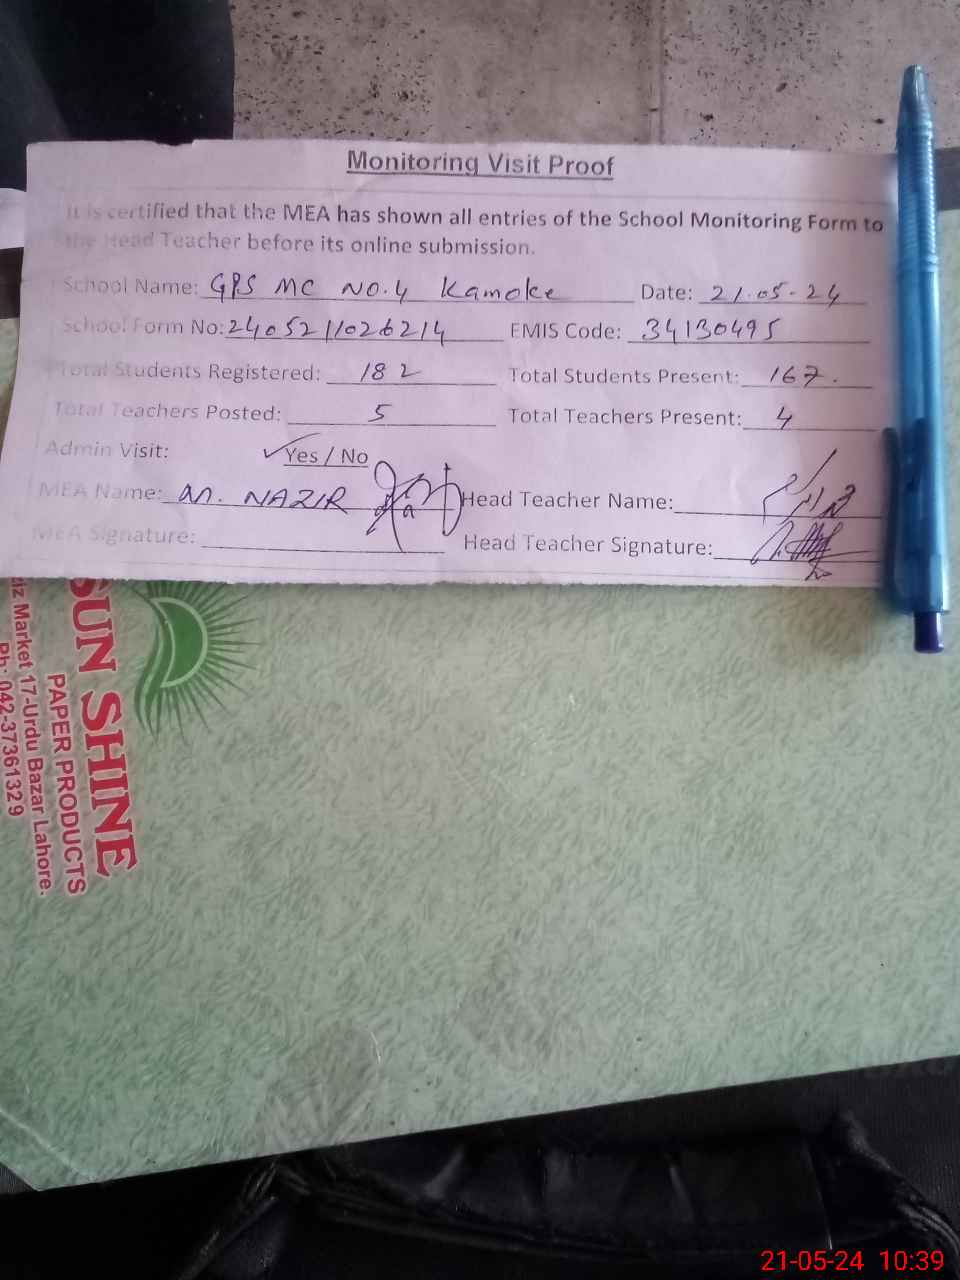 Monitoring Visit Proof
It is certified that the MEA has shown all entries of the School Monitoring Form to
the Head Teacher before its online submission.
School Name: GPS MC NO.4 Kamoke Date: 21.05-24
School Form No: 2405211026214 EMIS Code: 34130495
Total Students Registered: 182 Total Students Present: 167.
Total Teachers Posted: 5 Total Teachers Present: 4
Admin Visit: Yes / No
MEA Name: NAZIR Head Teacher Name:
MEA Signature: Head Teacher Signature:
SUN SHINE
PAPER PRODUCTS
Market 17-Urdu Bazar Lahore.
Ph: 042-37361329
21-05-24 10:39